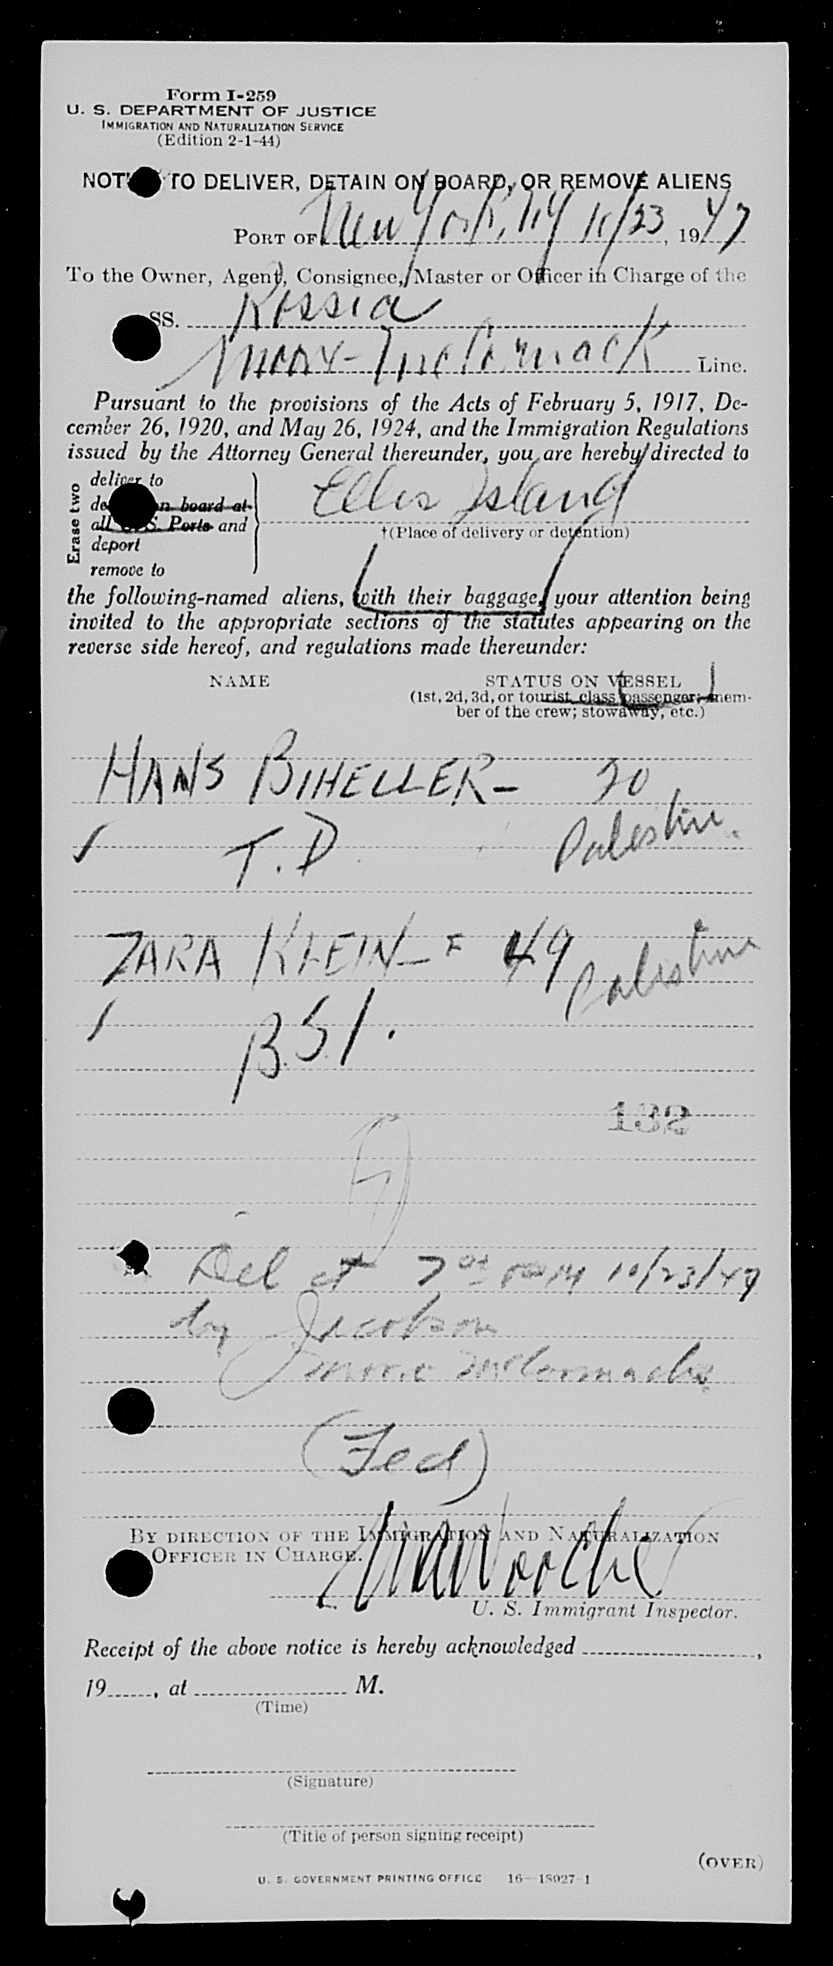 Form I-259
U. S. DEPARTMENT OF JUSTICE
IMMIGRATION AND NATURALIZATION SERVICE
(Edition 2-1-44)
TO DELIVER, DETAIN ON BOARD, OR REMOVE ALIENS
PORT OF New York, NY 10/23, 1947
To the Owner, Agent, Consignee, Master or Officer in Charge of the
SS. Rossia
Moore-McCormack Line.
Pursuant to the provisions of the Acts of February 5, 1917, De-
cember 26, 1920, and May 26, 1924, and the Immigration Regulations
issued by the Attorney General thereunder, you are hereby directed to
Erase two
deliver to
on board at
all U. S. Ports and
deport
remove to
Ellis Island
†(Place of delivery or detention)
the following-named aliens, with their baggage, your attention being
invited to the appropriate sections of the statutes appearing on the
reverse side hereof, and regulations made thereunder:
NAME STATUS ON VESSEL
(1st, 2d, 3d, or tourist class passenger; mem-
ber of the crew; stowaway, etc.)
HANS BIHELLER- 20
T. D. Palestine.
ZARA KLEIN- F 49 Palestine
B.S.I.
132
Del at 7 00 PM 10/23/47
by Jacobson
Moore McCormack
(Fed)
BY DIRECTION OF THE IMMIGRATION AND NATURALIZATION
OFFICER IN CHARGE.
U. S. Immigrant Inspector.
Receipt of the above notice is hereby acknowledged ,
19 , at M.
(Time)
(Signature)
(Title of person signing receipt)
(OVER)
U. S. GOVERNMENT PRINTING OFFICE 16—18027-1